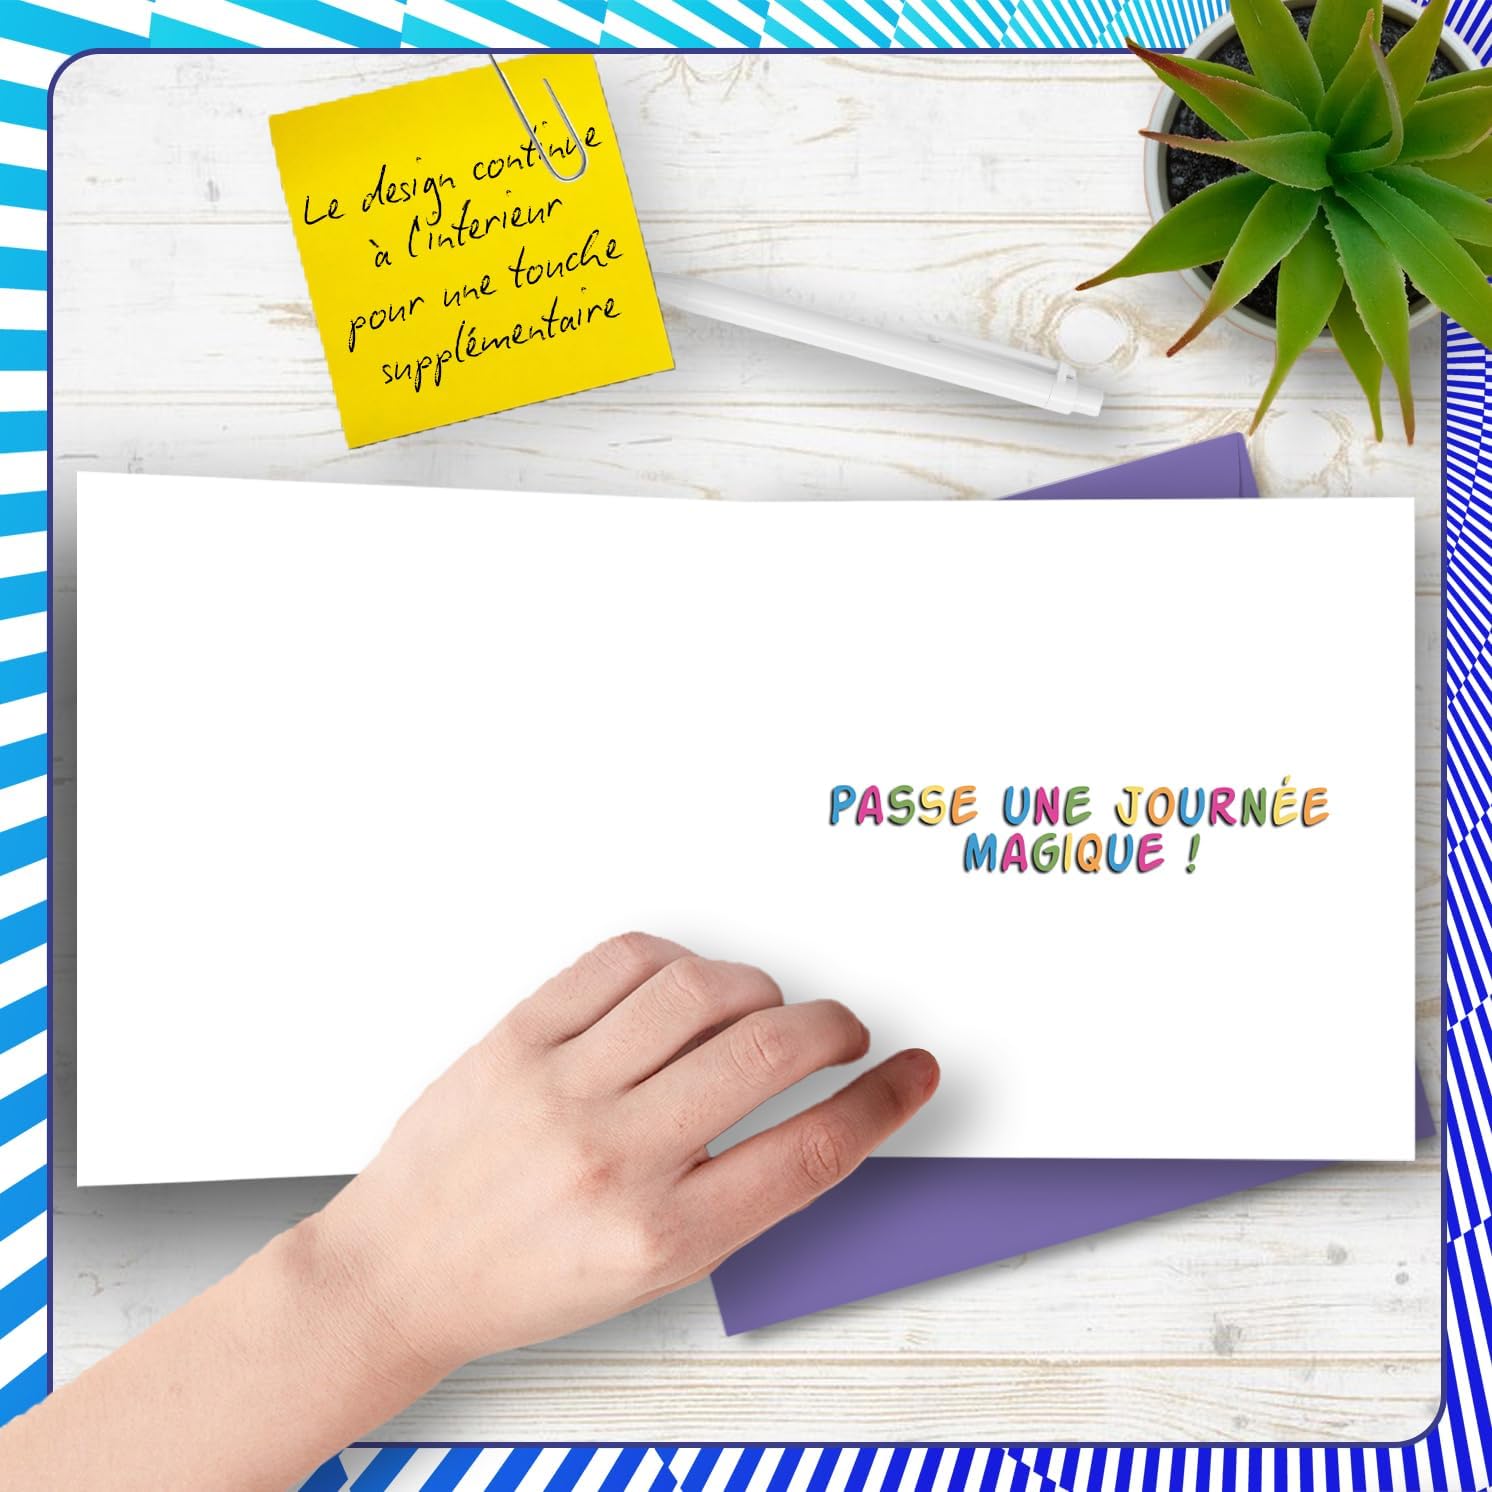 Le design continue
à l'interieur
pour une touche
supplémentaire
PASSE UNE JOURNÉE
MAGIQUE !